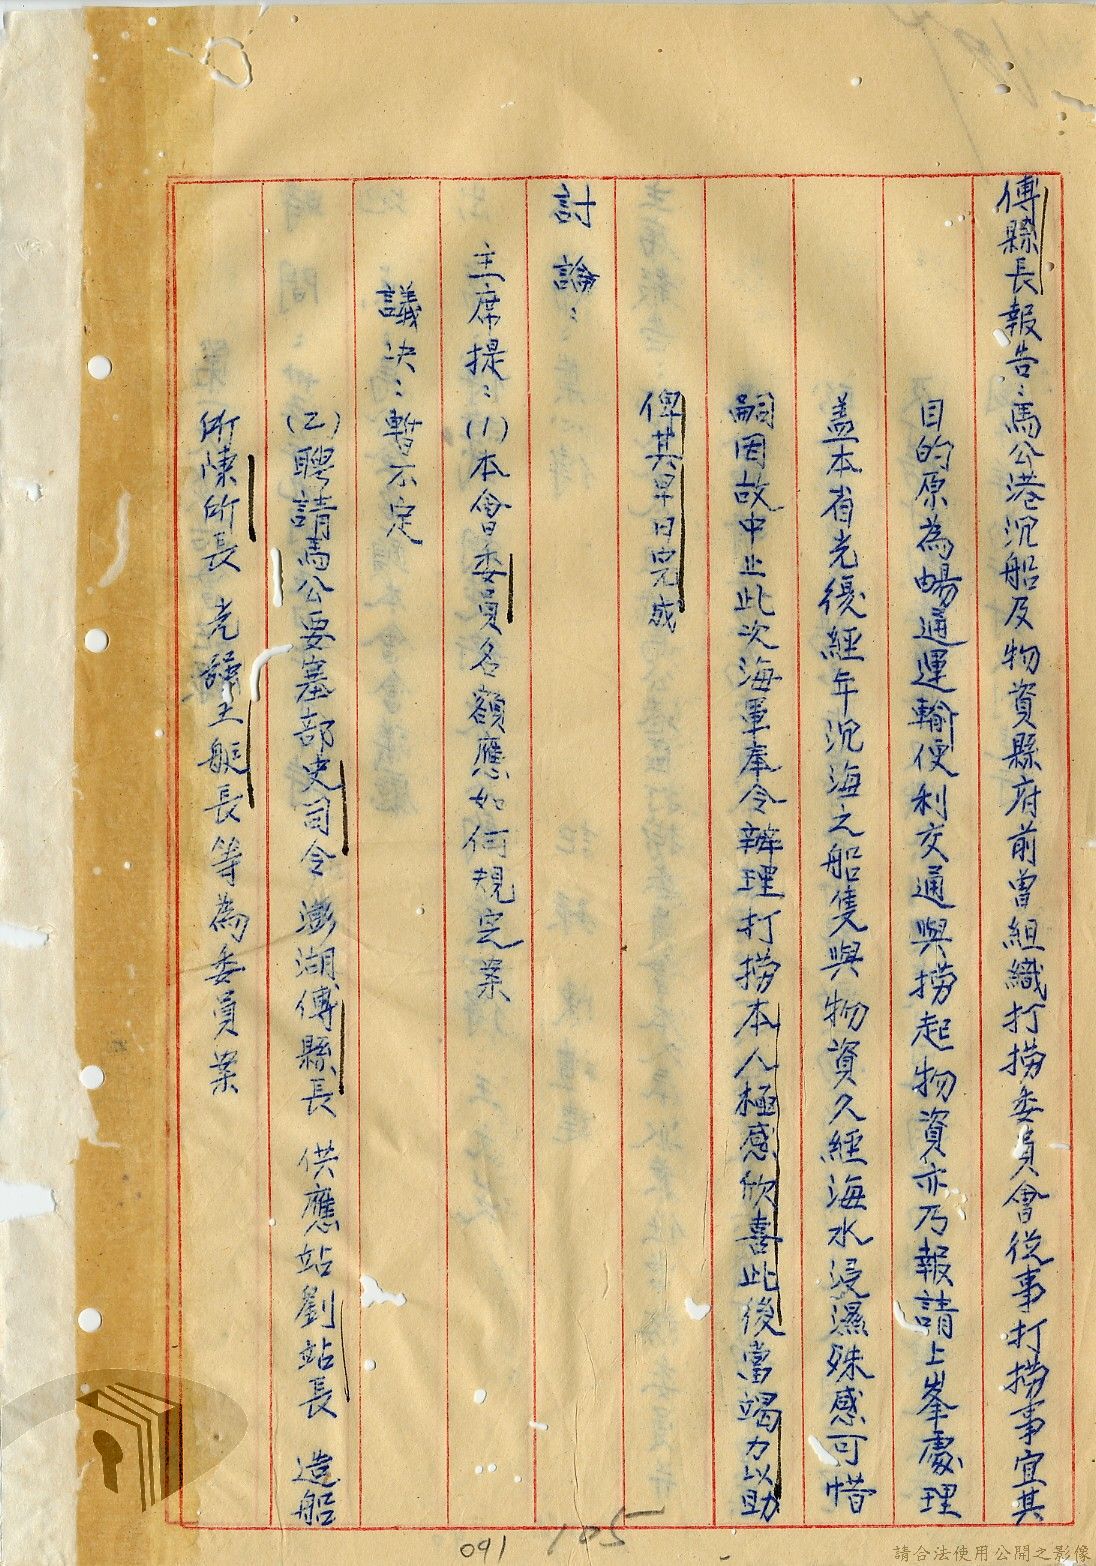 傅縣長報告：馬公港沉船及物資縣府前曾組織打撈委員會從事打撈事宜其
目的原為暢通運輸便利交通與撈起物資亦乃報請上峯處理
蓋本省光復經年沉海之船隻與物資久經海水浸濕殊感可惜
嗣因故中止此次海軍奉令辦理打撈本人極感欣喜此後當竭力以助
俾其早日完成
討論：
主席提：(1)本會委員名額應如何規定案
議決：暫不定
(2)聘請馬公要塞部史司令 澎湖傅縣長 供應站劉站長 造船
所陳所長 光 王艇長等為委員案
091 105
請合法使用公開之影像